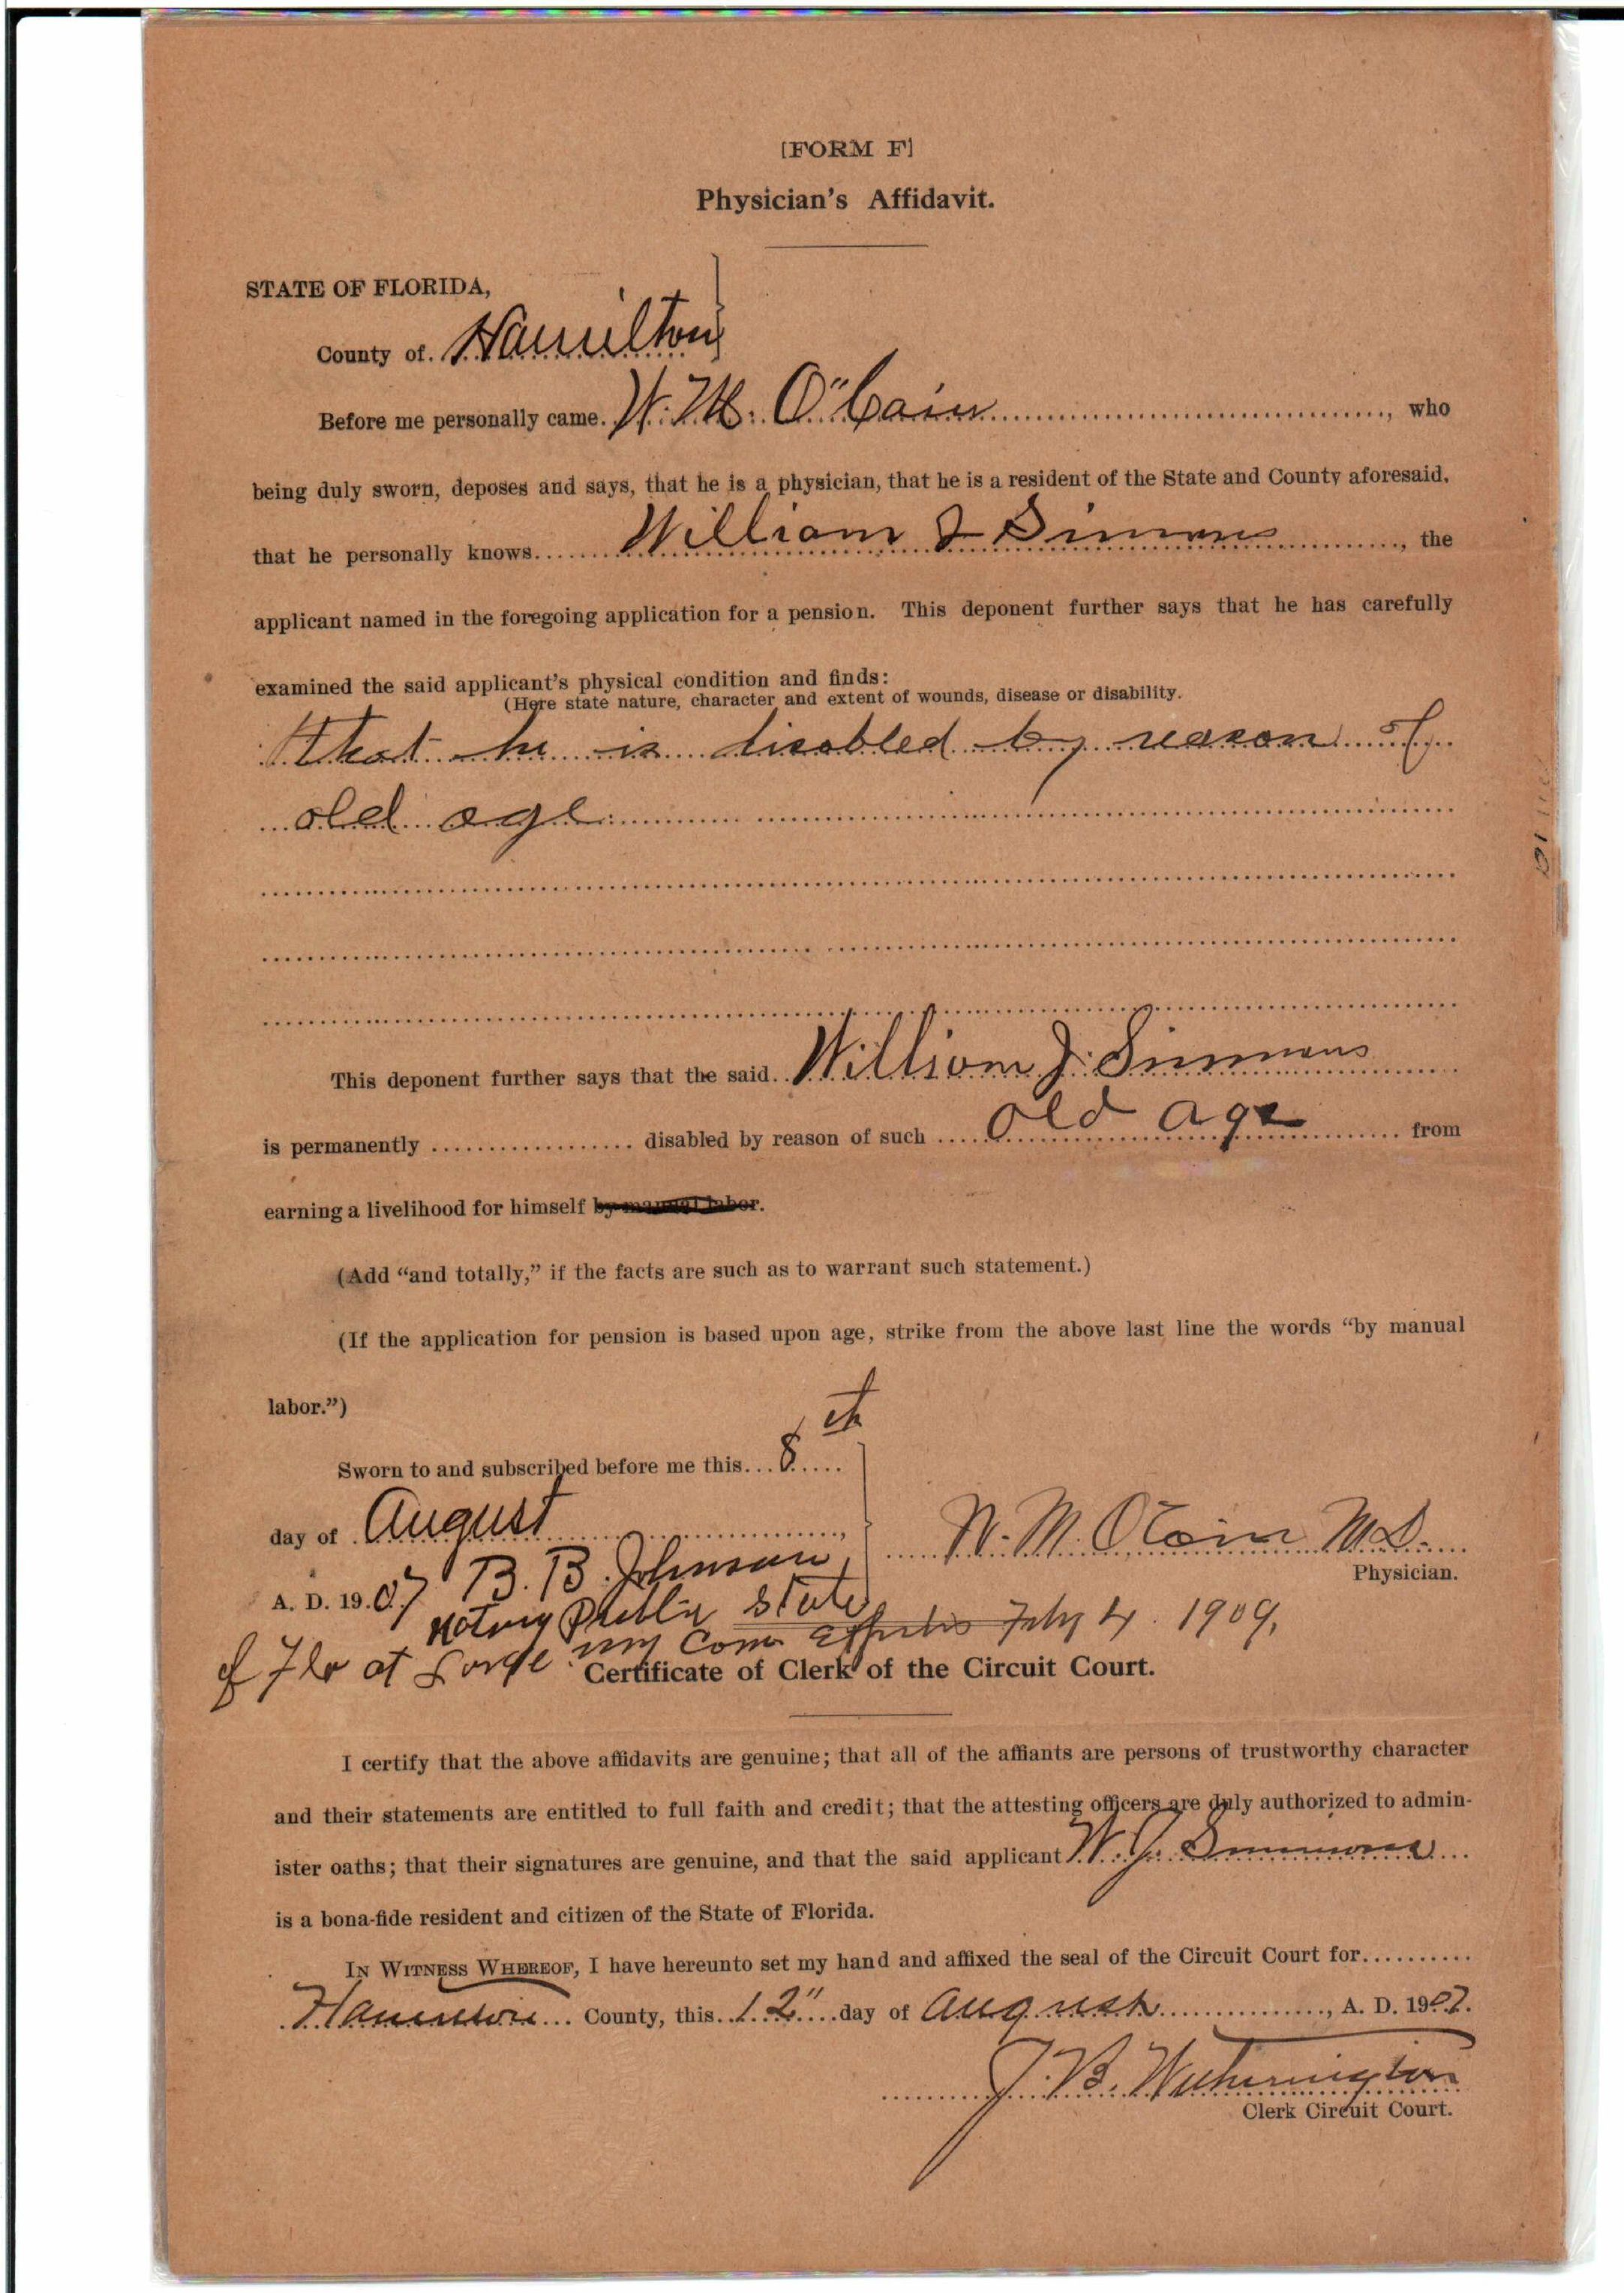 [FORM F]
Physician's Affidavit.
STATE OF FLORIDA,
County of Hamilton
Before me personally came W. M. O'Cain, who
being duly sworn, deposes and says, that he is a physician, that he is a resident of the State and County aforesaid.
that he personally knows William J Simons, the
applicant named in the foregoing application for a pension. This deponent further says that he has carefully
examined the said applicant's physical condition and finds:
(Here state nature, character and extent of wounds, disease or disability.
that he is disabled by reason of
old age
This deponent further says that the said William J. Simmons
is permanently disabled by reason of such old age from
earning a livelihood for himself by manual labor.
(Add “and totally,” if the facts are such as to warrant such statement.)
(If the application for pension is based upon age, strike from the above last line the words “by manual
labor.”)
Sworn to and subscribed before me this 8th
day of August,
W. M. OCain M.D.
Physician.
A. D. 1907 B. B. Johnson,
Notary Public State
of Flo at Large my Com Expires Feby 4. 1909.
Certificate of Clerk of the Circuit Court.
I certify that the above affidavits are genuine; that all of the affiants are persons of trustworthy character
and their statements are entitled to full faith and credit; that the attesting officers are duly authorized to admin-
ister oaths; that their signatures are genuine, and that the said applicant W. J. Simmons
is a bona-fide resident and citizen of the State of Florida.
IN WITNESS WHEREOF, I have hereunto set my hand and affixed the seal of the Circuit Court for
Hamilton County, this 12" day of August, A. D. 1907.
J. B. Witherington
Clerk Circuit Court.